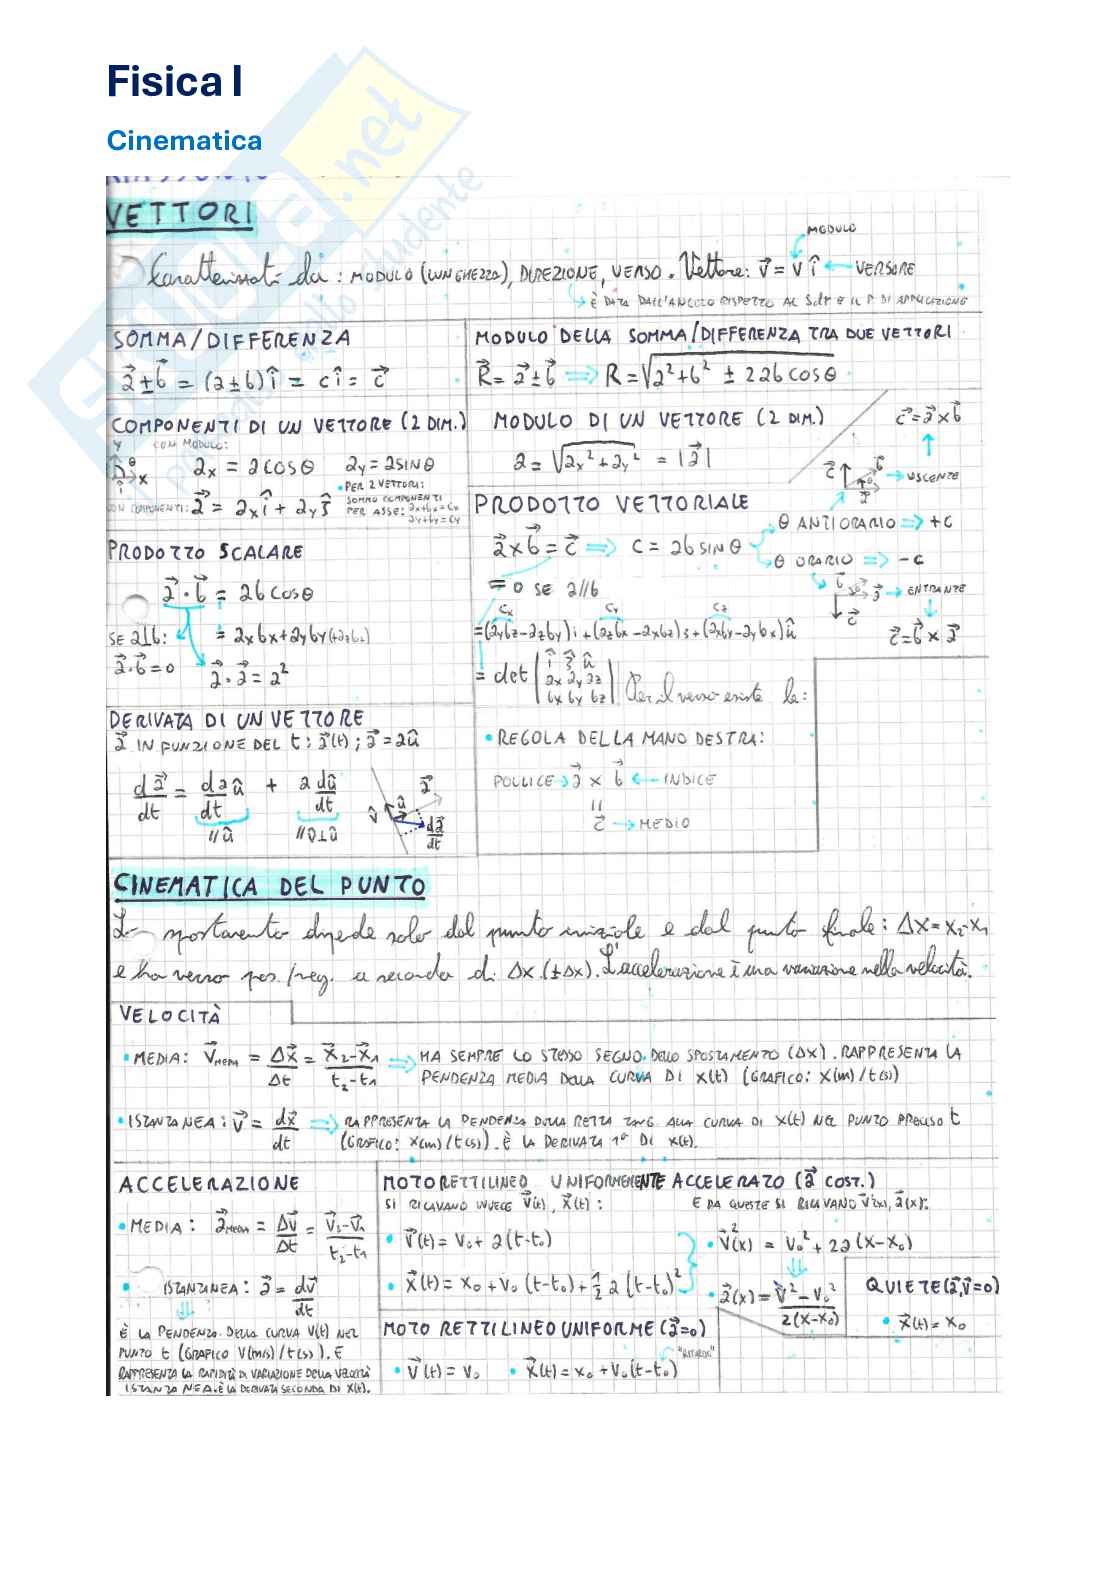 Fisica I
Cinematica
VETTORI
Caratterizzati da: MODULO (LUNGHEZZA), DIREZIONE, VERSO. Vettore: v⃗ = v î ← VERSORE
MODULO
È DATA DALL'ANGOLO RISPETTO AL SdR E IL P. DI APPLICAZIONE
SOMMA/DIFFERENZA
a⃗ ± b⃗ = (a±b) î = c î = c⃗
MODULO DELLA SOMMA/DIFFERENZA TRA DUE VETTORI
R⃗ = a⃗ ± b⃗ ⇒ R = √(a²+b² ± 2ab cosθ)
COMPONENTI DI UN VETTORE (2 DIM.)
y
CON MODULO:
θ
x
ax = a cosθ ay = a sinθ
CON COMPONENTI: a⃗ = ax î + ay ĵ
• PER 2 VETTORI:
SOMMO COMPONENTI
PER ASSE: ax+bx = cx
ay+by = cy
MODULO DI UN VETTORE (2 DIM.)
a = √(ax²+ay²) = |a⃗|
c⃗ = a⃗ × b⃗
c⃗ b⃗ θ a⃗ → USCENTE
PRODOTTO SCALARE
a⃗ · b⃗ = ab cosθ
SE a⊥b:
= axbx + ayby (+azbz)
a⃗·b⃗ = 0
a⃗ · a⃗ = a²
PRODOTTO VETTORIALE
a⃗ × b⃗ = c⃗ ⇒ c = ab sinθ
θ ANTIORARIO ⇒ +c
θ ORARIO ⇒ -c
= 0 SE a//b
b⃗ a⃗ → ENTRANTE
c⃗
c⃗ = b⃗ × a⃗
cx cy cz
= (aybz-azby) i + (azbx-axbz) j + (axby-aybx) û
= det | î ĵ û |
ax ay az
bx by bz
Per il verso esiste la:
• REGOLA DELLA MANO DESTRA:
POLLICE → a⃗ × b⃗ ← INDICE
||
c⃗ → MEDIO
DERIVATA DI UN VETTORE
a⃗ IN FUNZIONE DEL t: a⃗(t); a⃗ = aû
da⃗/dt = da/dt û + a dû/dt
//û
//v̂⊥û
v̂ û a⃗ da⃗/dt
CINEMATICA DEL PUNTO
Lo spostamento dipende solo dal punto iniziale e dal punto finale: Δx = x₂-x₁
e ha verso pos./neg. a seconda di Δx (±Δx). L'accelerazione è una variazione nella velocità.
VELOCITÀ
• MEDIA: v⃗MEDIA = Δx⃗/Δt = (x⃗₂-x⃗₁)/(t₂-t₁) ⇒ HA SEMPRE LO STESSO SEGNO DELLO SPOSTAMENTO (Δx). RAPPRESENTA LA
PENDENZA MEDIA DELLA CURVA DI x(t) (GRAFICO: x(m)/t(s))
• ISTANTANEA: v⃗ = dx⃗/dt ⇒ RAPPRESENTA LA PENDENZA DELLA RETTA TANG. ALLA CURVA DI x(t) NEL PUNTO PRECISO t
(GRAFICO: x(m)/t(s)). È LA DERIVATA 1ª DI x(t).
ACCELERAZIONE
• MEDIA: a⃗MEDIA = Δv⃗/Δt = (v⃗₂-v⃗₁)/(t₂-t₁)
• ISTANTANEA: a⃗ = dv⃗/dt
È LA PENDENZA DELLA CURVA v(t) NEL
PUNTO t (GRAFICO v(m/s)/t(s)). E
RAPPRESENTA LA RAPIDITÀ DI VARIAZIONE DELLA VELOCITÀ
ISTANTANEA. È LA DERIVATA SECONDA DI x(t).
MOTO RETTILINEO UNIFORMEMENTE ACCELERATO (a⃗ COST.)
SI RICAVANO INVECE v⃗(t), x⃗(t):
• v⃗(t) = v₀ + a(t-t₀)
• x⃗(t) = x₀ + v₀(t-t₀) + ½ a (t-t₀)²
E DA QUESTE SI RICAVANO v⃗(x), a⃗(x):
• v⃗²(x) = v₀² + 2a(x-x₀)
• a⃗(x) = (v⃗²-v₀²)/(2(x-x₀))
QUIETE (a⃗,v⃗=0)
• x⃗(t) = x₀
MOTO RETTILINEO UNIFORME (a⃗=0)
"RITARDO"
• v⃗(t) = v₀ • x⃗(t) = x₀ + v₀(t-t₀)